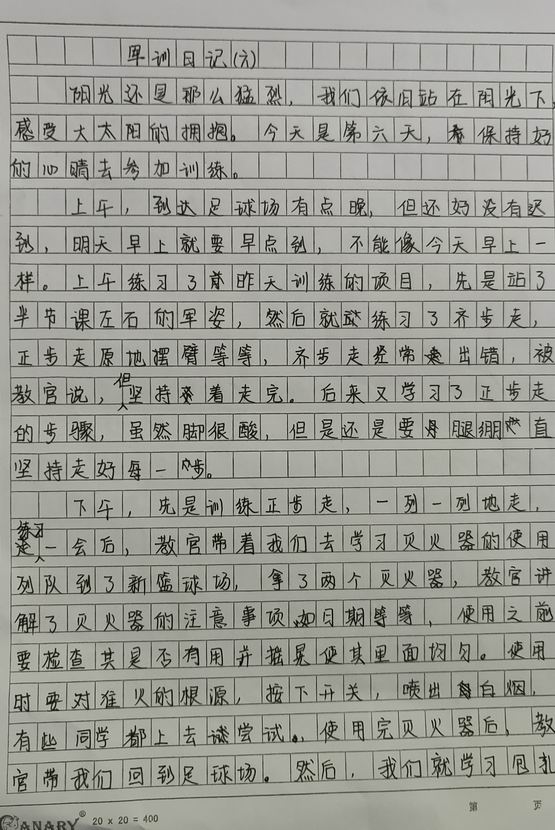 军训日记(六)
阳光还是那么猛烈，我们依旧站在阳光下，
感受大太阳的拥抱。今天是第六天，保持好
的心晴去参加训练。
上午，到达足球场有点晚，但还好没有迟
到，明天早上就要早点到，不能像今天早上一
样。上午练习了前昨天训练的项目，先是站了
半节课左右的军姿，然后就练习了齐步走，
正步走原地摆臂等等，齐步走经常出错，被
教官说，但坚持着走完。后来又学习了正步走
的步骤，虽然脚很酸，但是还是要腿绷直
坚持走好每一步。
下午，先是训练正步走，一列一列地走，
练习一会后，教官带着我们去学习灭火器的使用
列队到了新篮球场，拿了两个灭火器，教官讲
解了灭火器的注意事项如日期等等，使用之前
要检查其是否有用并摇晃使其里面均匀。使用
时要对准火的根源，按下开关，喷出白烟，
有些同学都上去尝试。使用完灭火器后，教
官带我们回到足球场。然后，我们就学习包扎
CANARY® 20 x 20 = 400 第 页